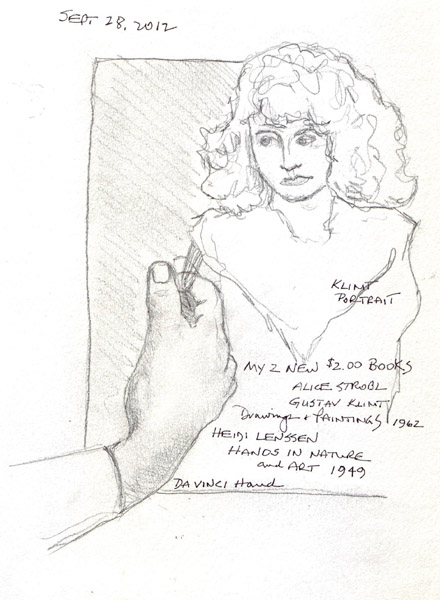 SEPT 28, 2012
KLIMT
PORTRAIT
MY 2 NEW $2.00 BOOKS
ALICE STROBL
GUSTAV KLIMT
Drawings & PAINTINGS 1962
HEIDI LENSSEN
HANDS IN NATURE
and ART 1949
DA VINCI Hand